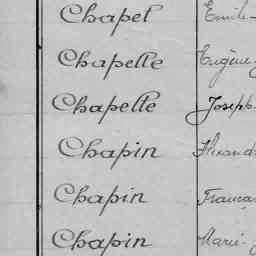 Chapel Emile
Chapelle Eugène
Chapelle Joseph
Chapin
Chapin
Chapin Marie